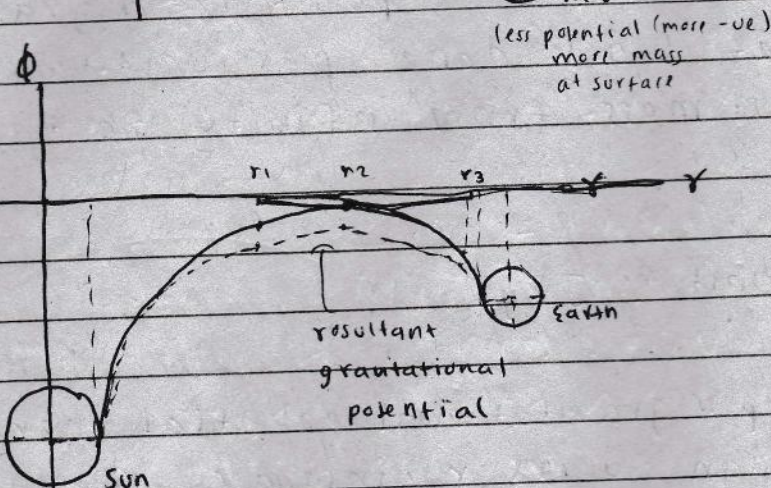 less potential (more -ve)
more mass
at surface
ϕ
r1 r2 r3 r
Earth
resultant
gravitational
potential
Sun